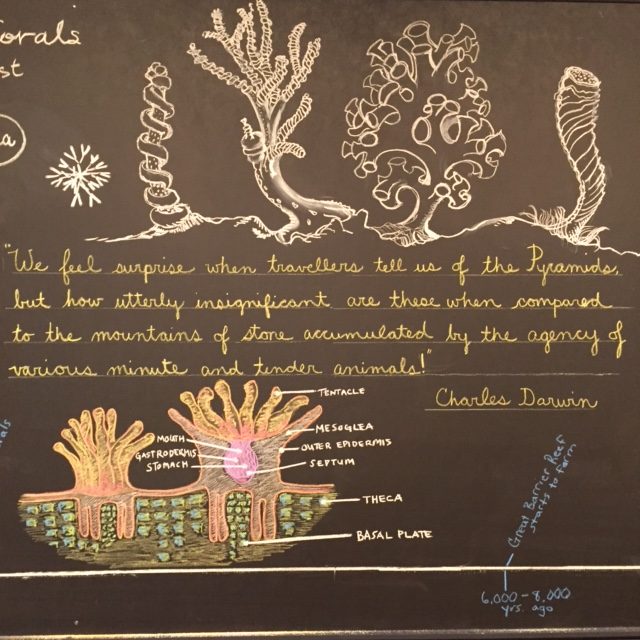 orals
st
a
"We feel surprise when travellers tell us of the Pyramids,
but how utterly insignificant are these when compared
to the mountains of stone accumulated by the agency of
various minute and tender animals!"
Charles Darwin
TENTACLE
MESOGLEA
MOUTH
OUTER EPIDERMIS
GASTRODERMIS
STOMACH
SEPTUM
THECA
BASAL PLATE
als
Great Barrier Reef
starts to form
6,000-8,000
yrs. ago